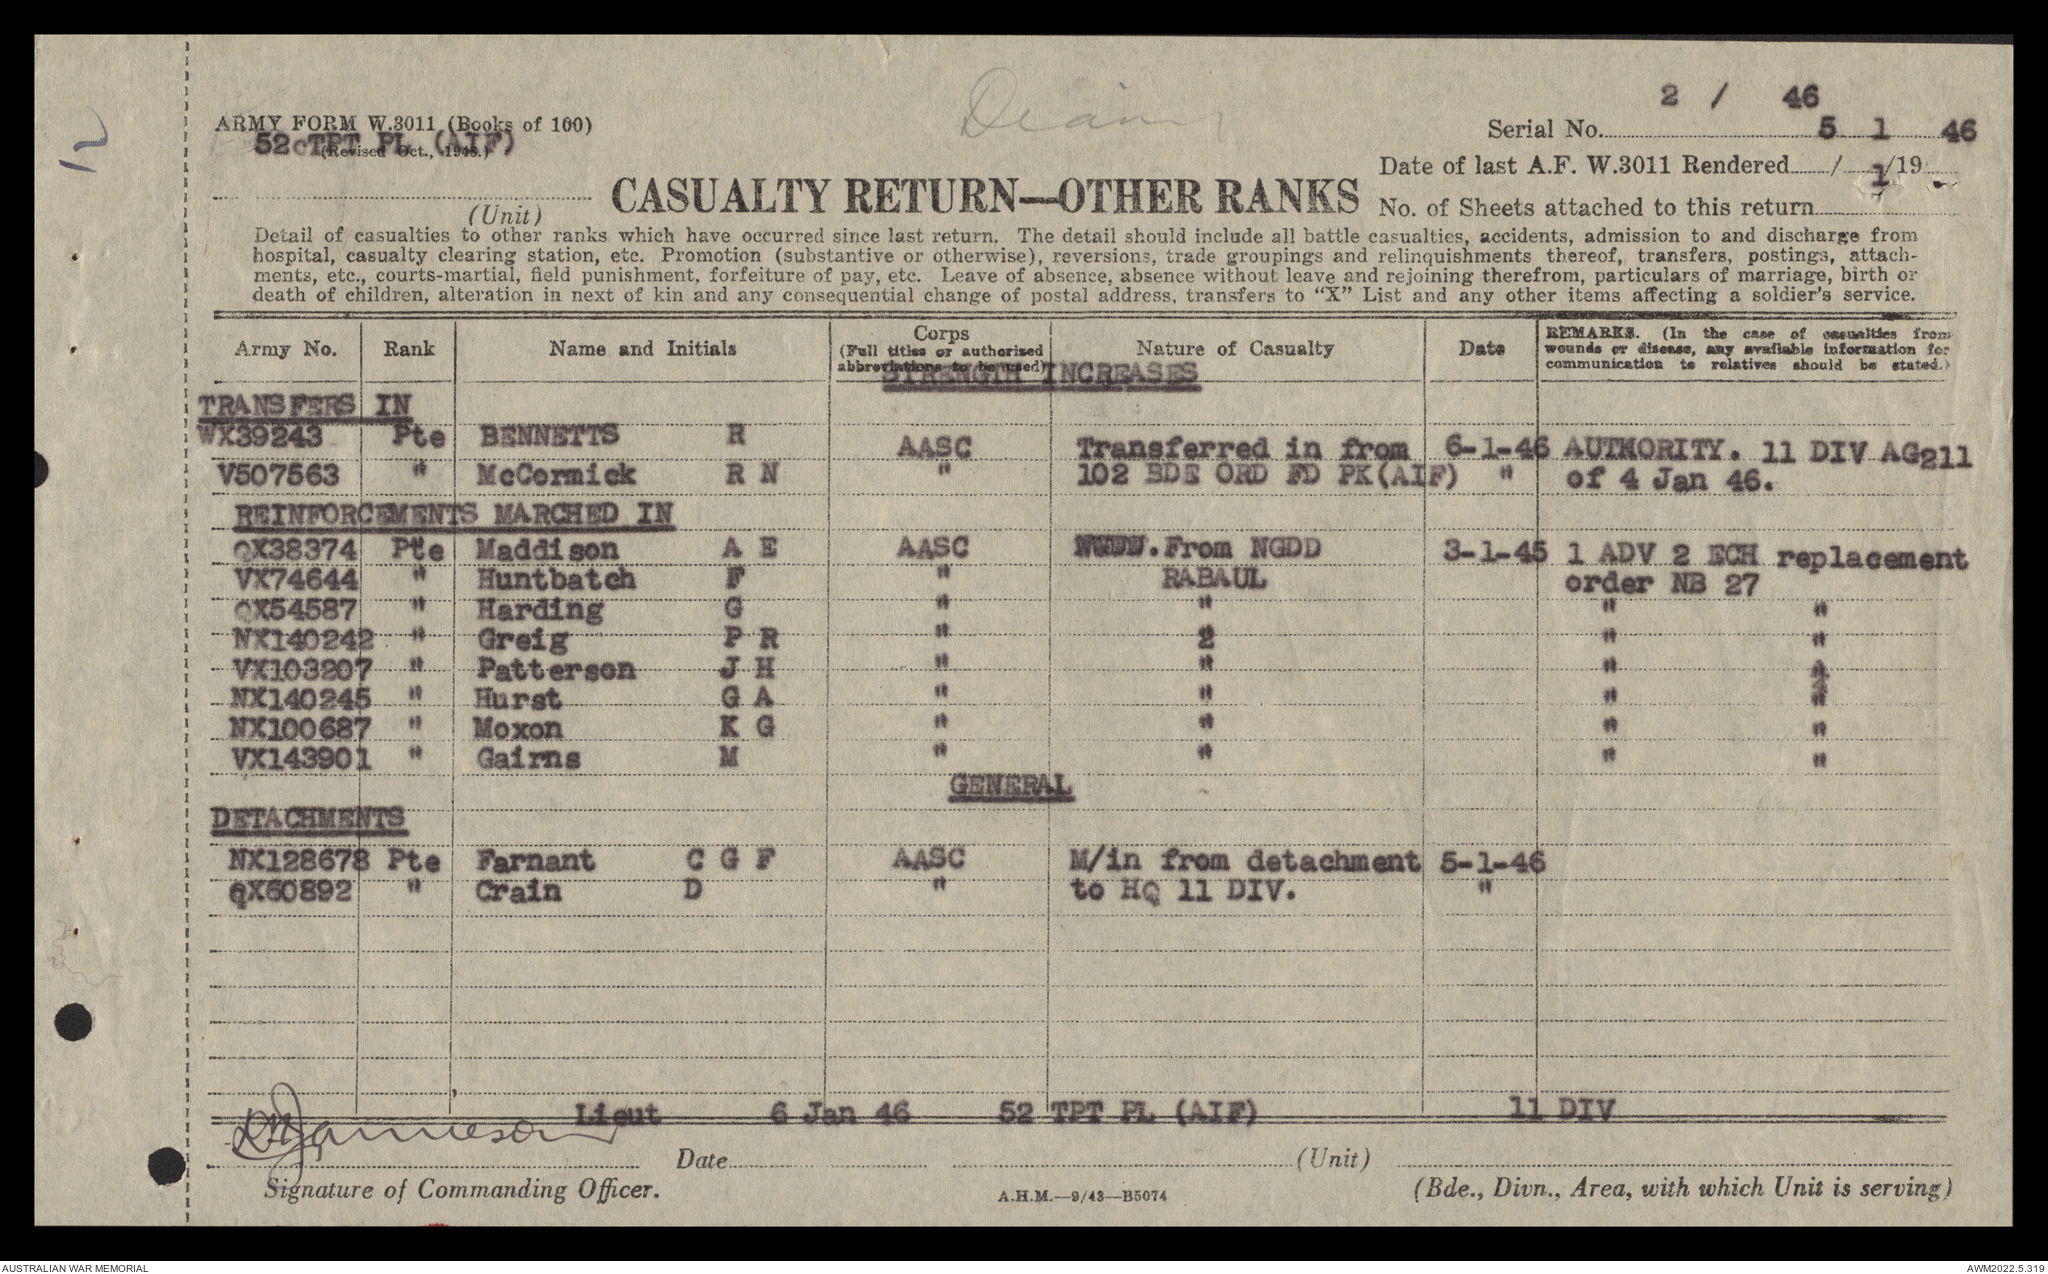 12
Diary
2 / 46
ARMY FORM W.3011 (Books of 100)
52 TPT PL (AIF)
(Revised Oct., 1943.)
Serial No. 5 1 46
Date of last A.F. W.3011 Rendered / /19
(Unit)
CASUALTY RETURN—OTHER RANKS
No. of Sheets attached to this return 1
Detail of casualties to other ranks which have occurred since last return. The detail should include all battle casualties, accidents, admission to and discharge from
hospital, casualty clearing station, etc. Promotion (substantive or otherwise), reversions, trade groupings and relinquishments thereof, transfers, postings, attach-
ments, etc., courts-martial, field punishment, forfeiture of pay, etc. Leave of absence, absence without leave and rejoining therefrom, particulars of marriage, birth or
death of children, alteration in next of kin and any consequential change of postal address, transfers to "X" List and any other items affecting a soldier's service.
Army No. Rank Name and Initials Corps (Full titles or authorized abbreviations to be used) Nature of Casualty Date REMARKS. (In the case of casualties from wounds or disease, any available information for communication to relatives should be stated.)
STRENGTH INCREASES
TRANSFERS IN
WX39243 Pte BENNETTS R AASC Transferred in from 6-1-46 AUTHORITY. 11 DIV AG211
V507563 " McCormick R N " 102 BDE ORD FD PK(AIF) " of 4 Jan 46.
REINFORCEMENTS MARCHED IN
QX38374 Pte Maddison A E AASC From NGDD 3-1-45 1 ADV 2 ECH replacement
VX74644 " Huntbatch F " RABAUL order NB 27
QX54587 " Harding G " " " "
NX140242 " Greig P R " " " "
VX103207 " Patterson J H " " " "
NX140245 " Hurst G A " " " "
NX100687 " Moxon K G " " " "
VX143901 " Gairns M " " " "
GENERAL
DETACHMENTS
NX128678 Pte Farnant C G F AASC M/in from detachment 5-1-46
QX60892 " Crain D " to HQ 11 DIV. "
DNJamieson Lieut 6 Jan 46 52 TPT PL (AIF) 11 DIV
Date (Unit)
Signature of Commanding Officer. A.H.M.—9/43—B5074 (Bde., Divn., Area, with which Unit is serving)
AUSTRALIAN WAR MEMORIAL AWM2022.5.319